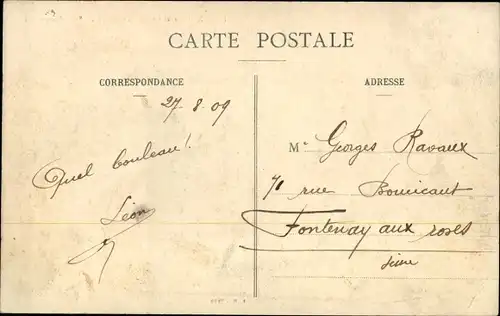 CARTE POSTALE
CORRESPONDANCE
ADRESSE
27.8.09
Quel bouleau!
Léon
Mr Georges Ravaux
71 rue Boucicaut
Fontenay aux roses
Seine